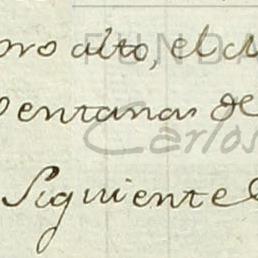 oro alto, el
Ventanas de
Siguiente
FUNDA
Carlos